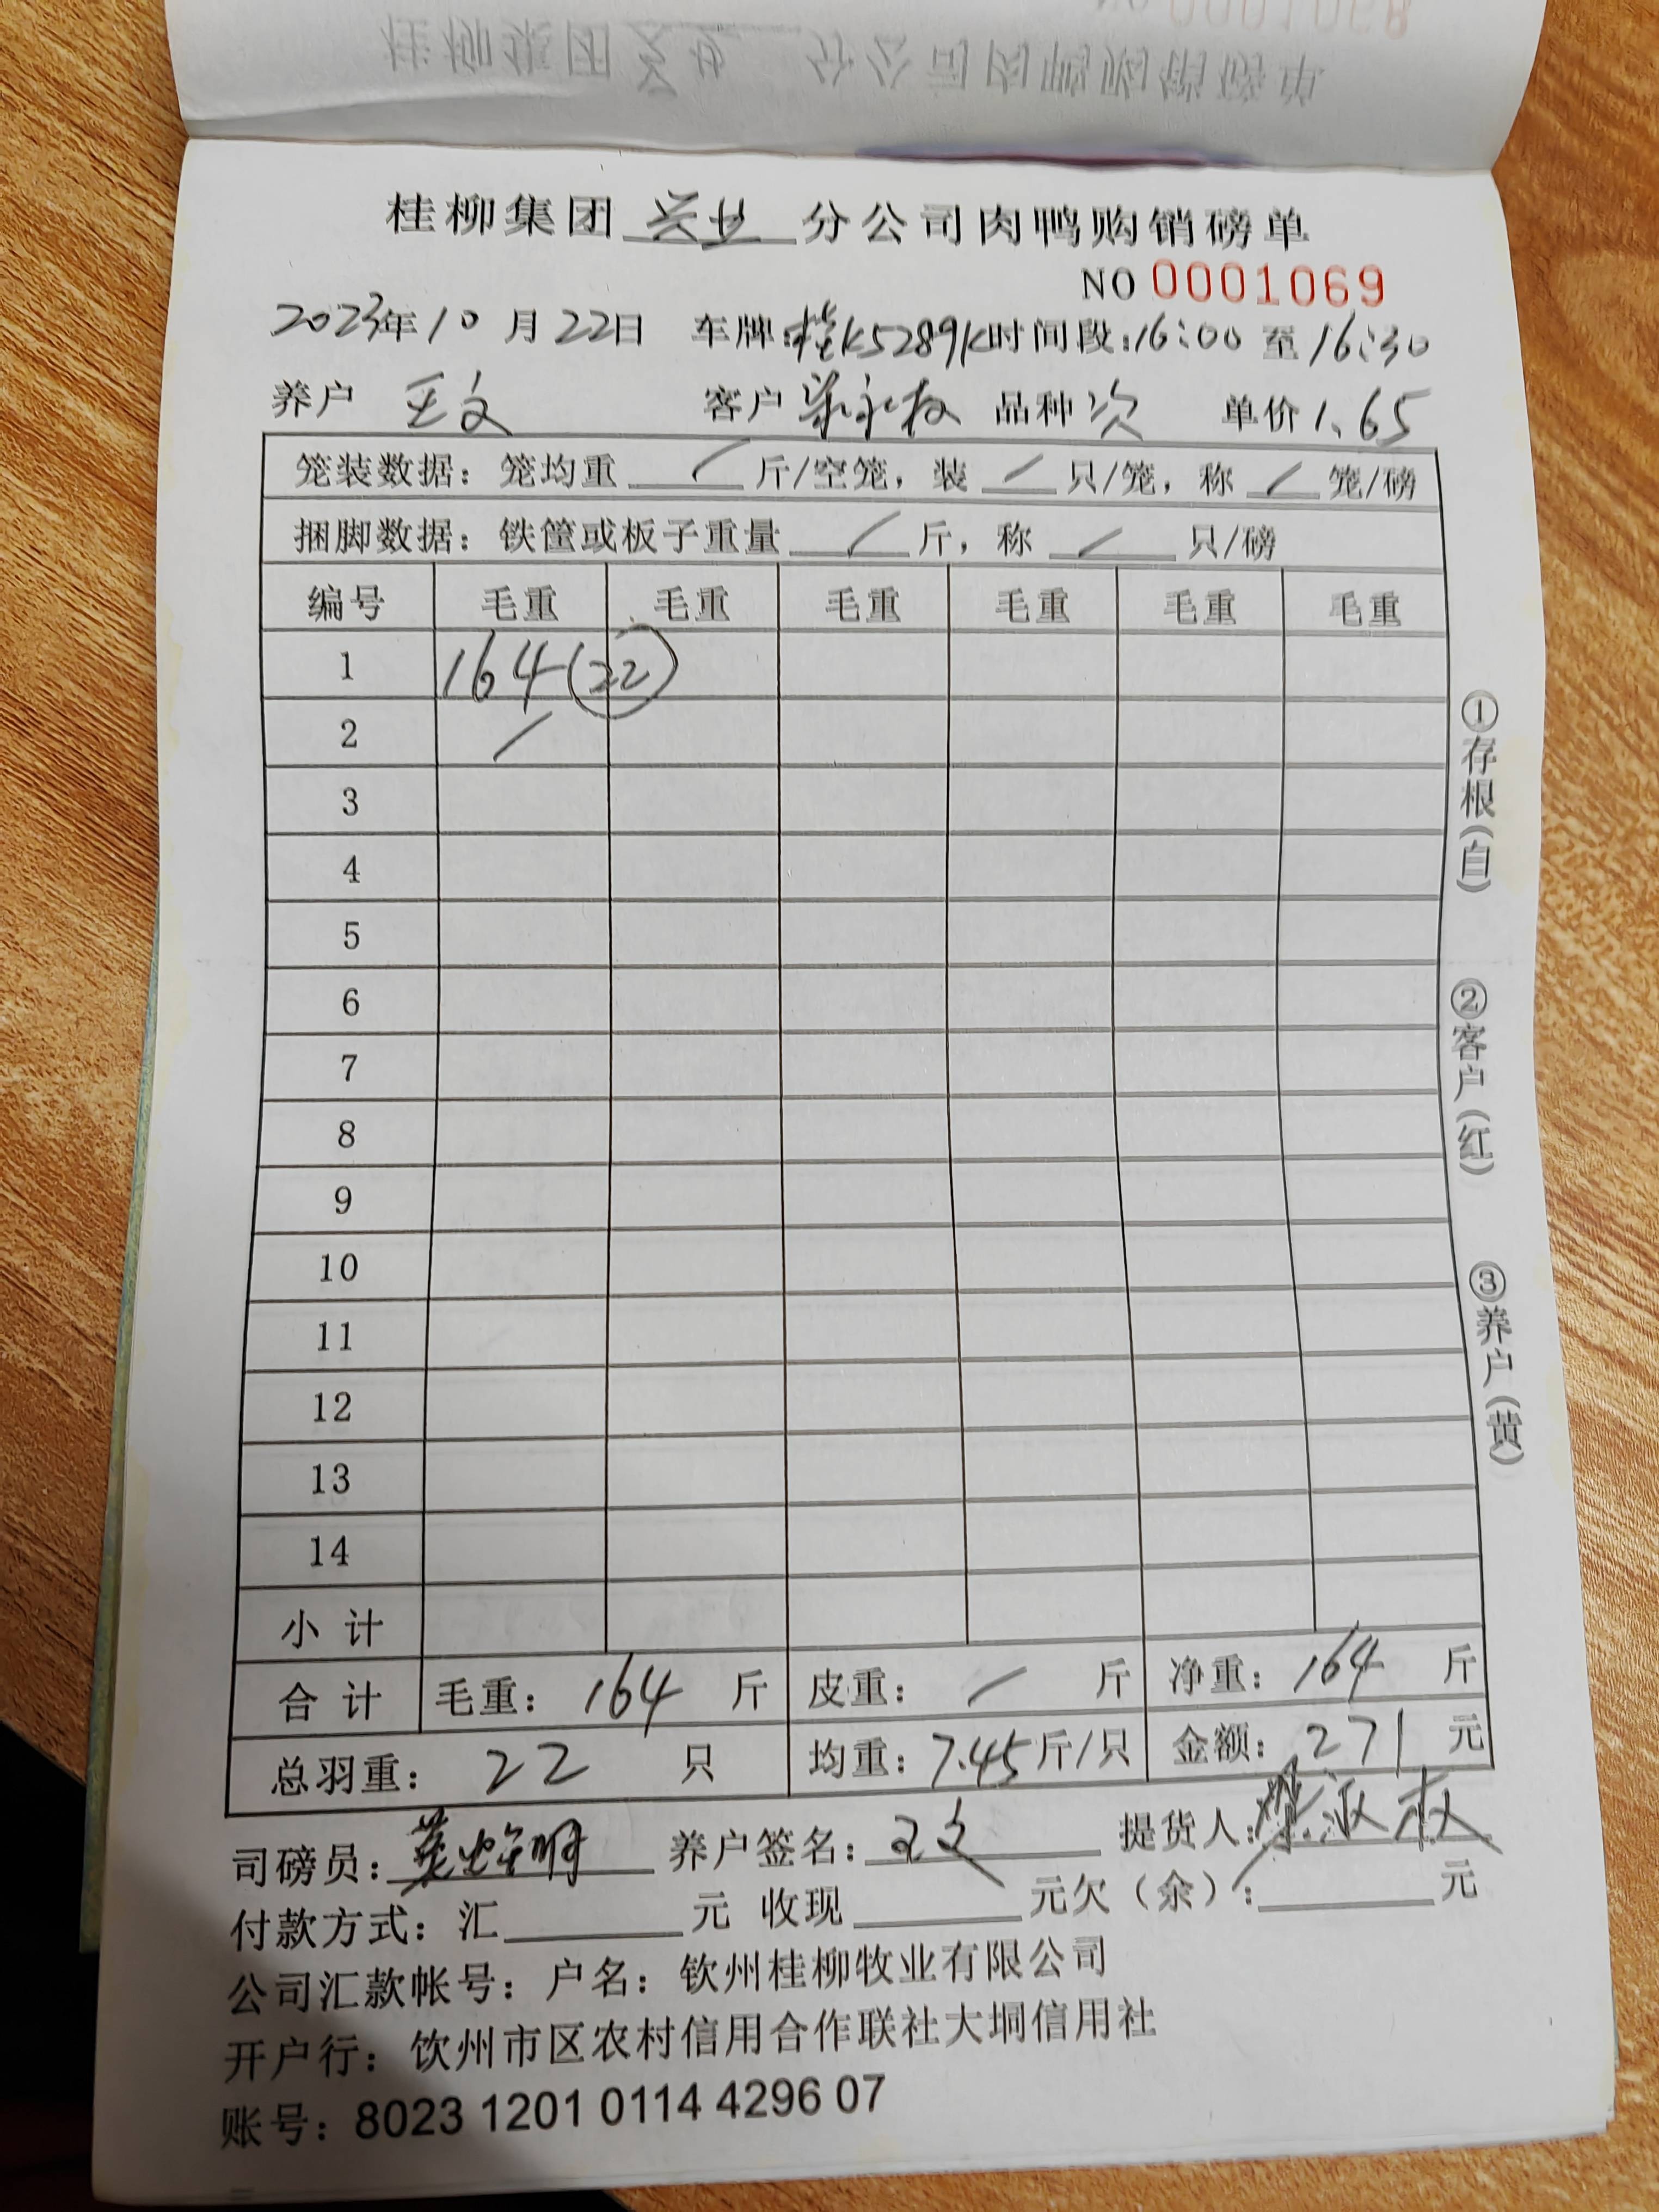 桂柳集团 兴业 分公司肉鸭购销磅单
NO 0001069
2023年10月22日 车牌:桂K5289K 时间段:16:00 至 16:30
养户 王文 客户 品种 次 单价 1.65
笼装数据: 笼均重 / 斤/空笼, 装 / 只/笼, 称 / 笼/磅
捆脚数据: 铁筐或板子重量 / 斤, 称 / 只/磅
编号 毛重 毛重 毛重 毛重 毛重 毛重
1 164 (22)
2 /
3
4
5
6
7
8
9
10
11
12
13
14
小计
合计 毛重: 164 斤 皮重: / 斤 净重: 164 斤
总羽重: 22 只 均重: 7.45 斤/只 金额: 271 元
司磅员: 养户签名: 王文 提货人:
付款方式: 汇 元 收现 元欠(余): 元
公司汇款帐号: 户名: 钦州桂柳牧业有限公司
开户行: 钦州市区农村信用合作联社大垌信用社
账号: 8023 1201 0114 4296 07
①存根(白)
②客户(红)
③养户(黄)